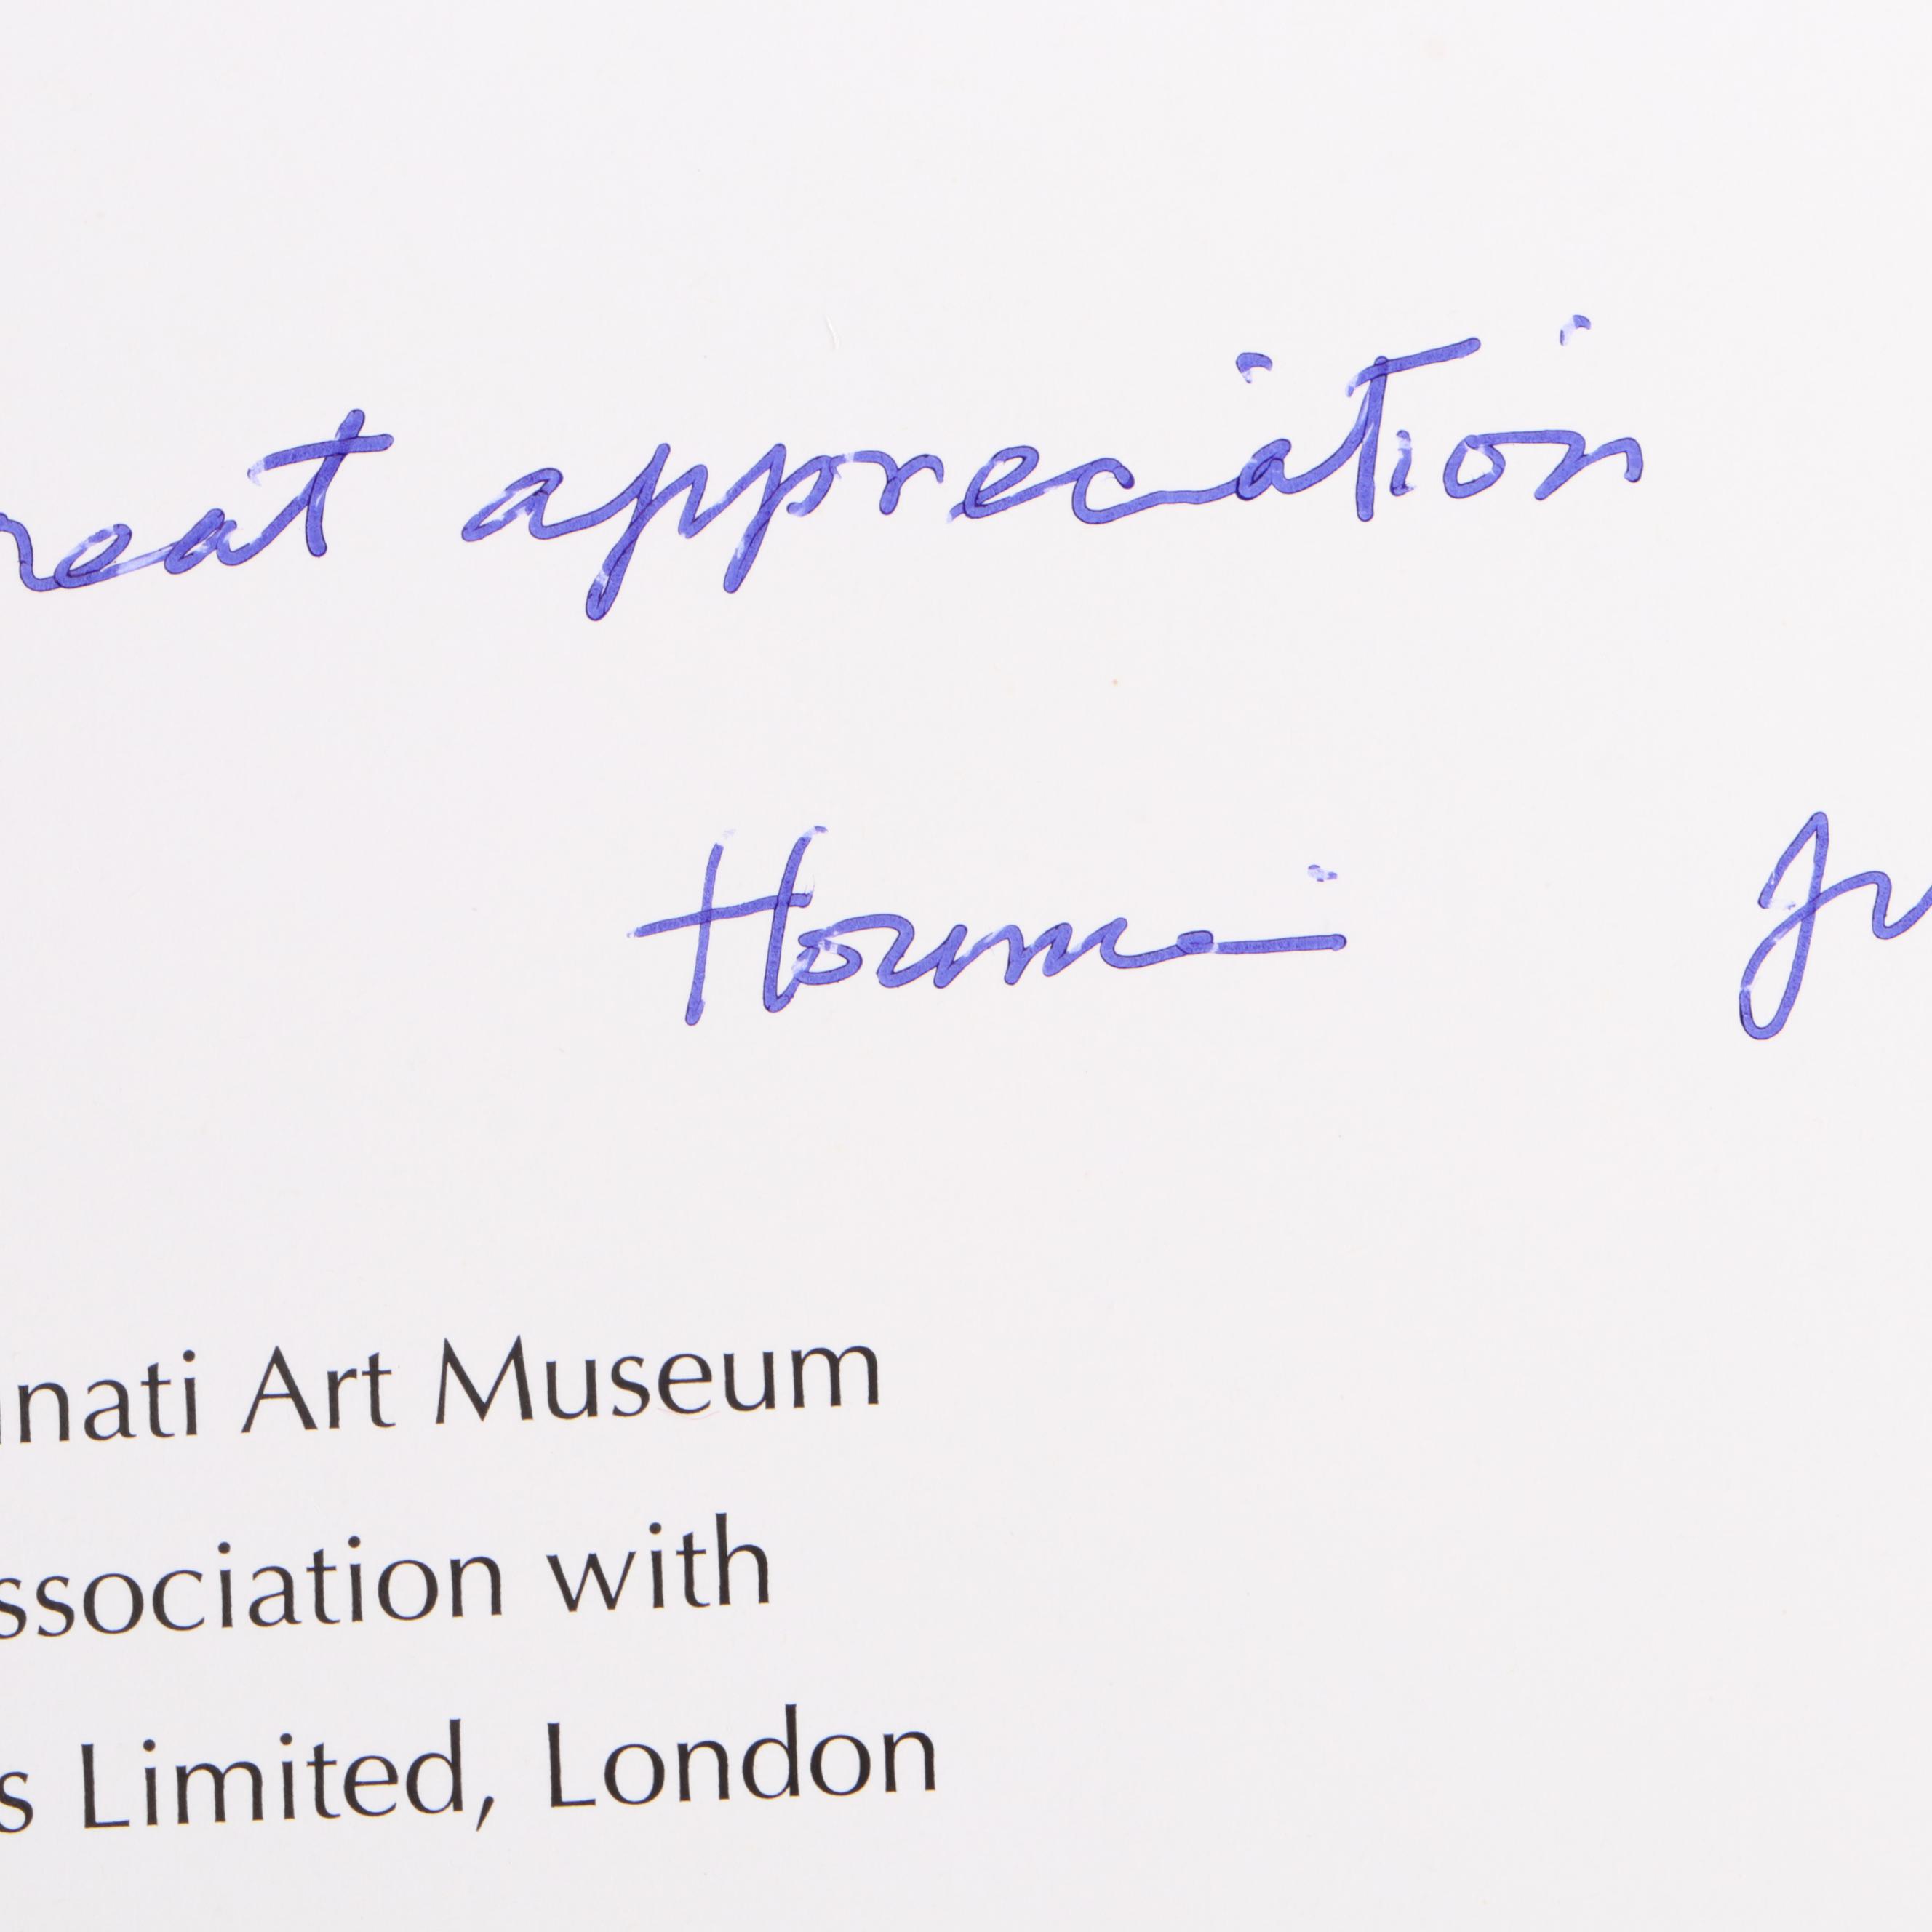 reat appreciation
Houmi Ju
nnati Art Museum
ssociation with
s Limited, London